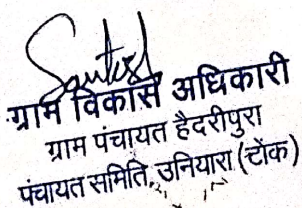 Santosh
ग्राम विकास अधिकारी
ग्राम पंचायत हैदरीपुरा
पंचायत समिति, उनियारा (टोंक)